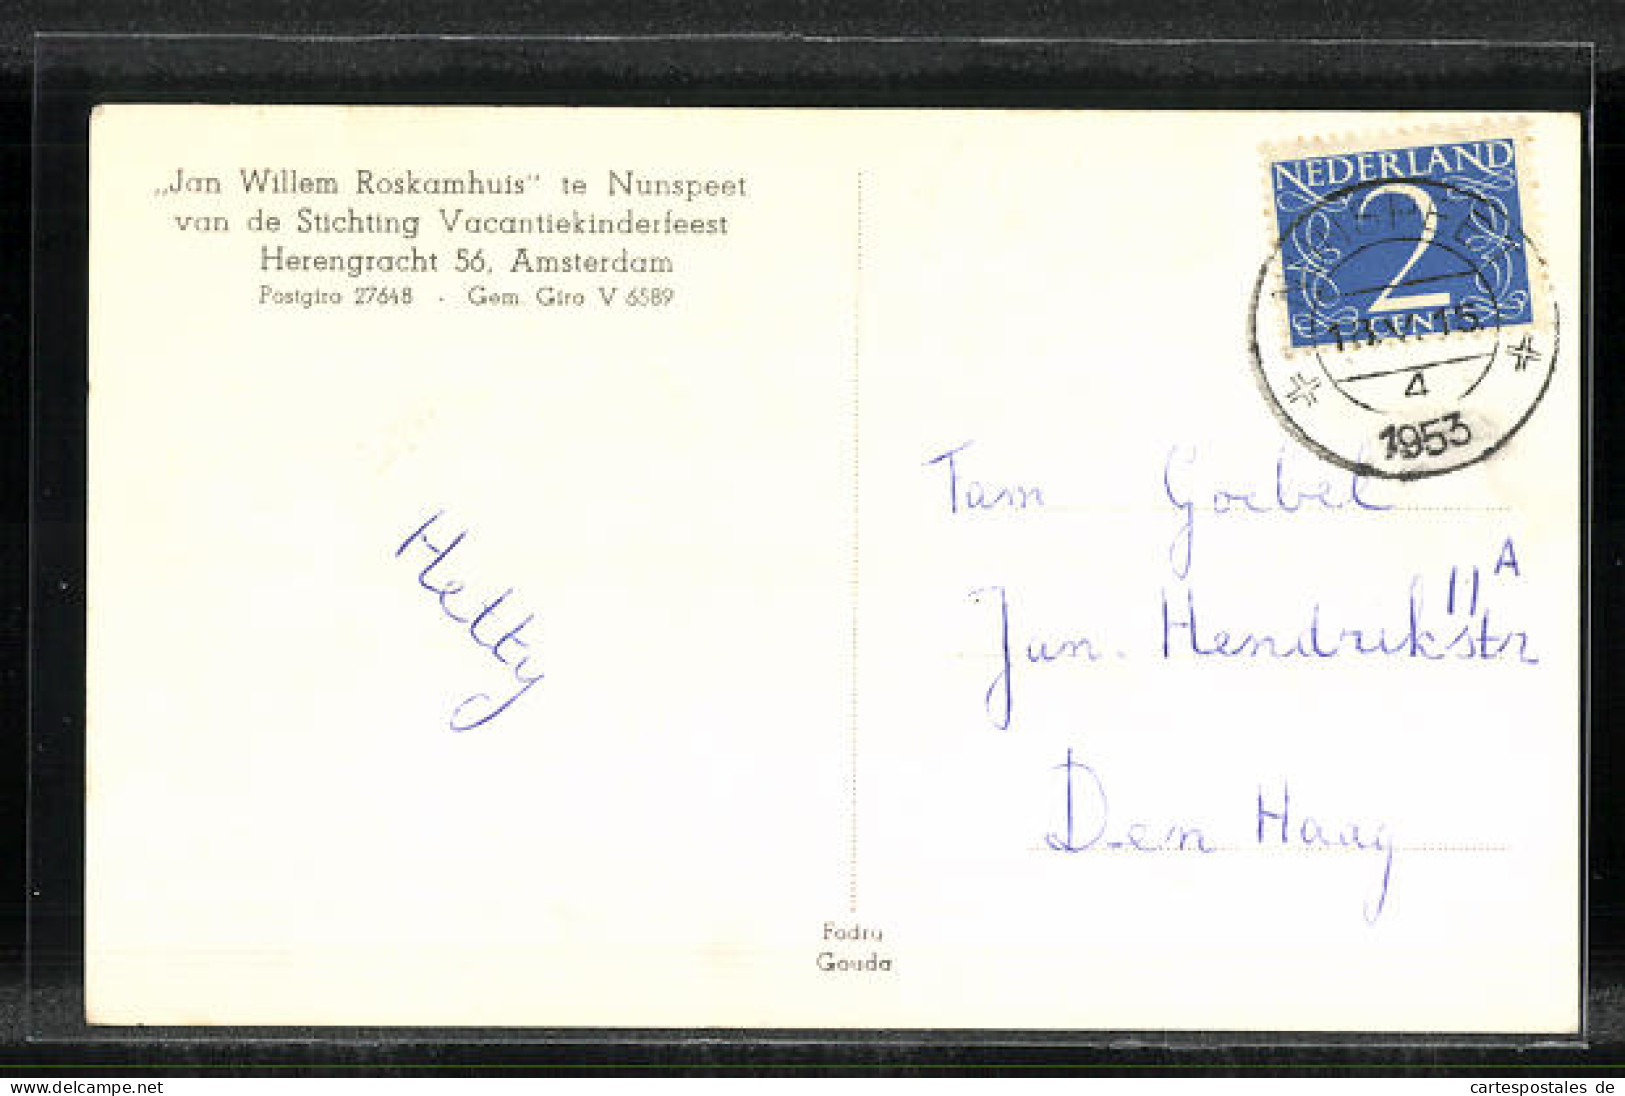 „Jan Willem Roskamhuis" te Nunspeet
van de Stichting Vacantiekinderfeest
Herengracht 56, Amsterdam
Postgiro 27648 - Gem. Giro V 6589
NEDERLAND
2
CENT
4
1953
Hetty
Fam Goebel
Jan. Hendrikstr 11 A
Den Haag
Fadru
Gouda
delcampe.net
cartespostales de